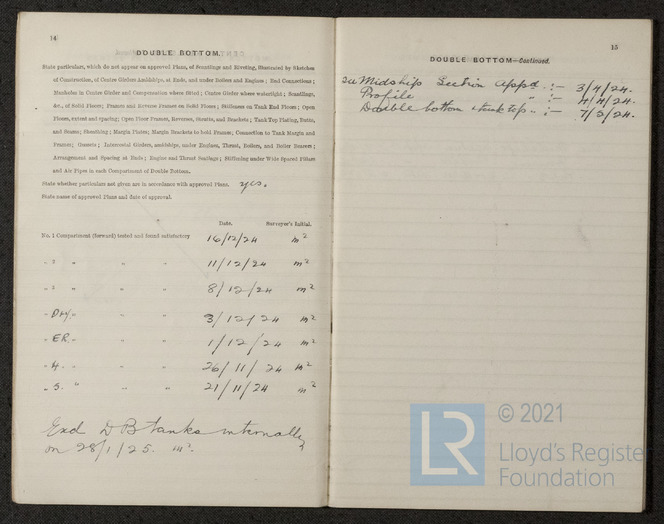 14
DOUBLE BOTTOM.
State particulars, which do not appear on approved Plans, of Scantlings and Riveting, illustrated by Sketches
of Construction, of Centre Girders Amidships, at Ends, and under Boilers and Engines; End Connections;
Manholes in Centre Girder and Compensation where fitted; Centre Girder where watertight; Scantlings,
&c., of Solid Floors; Frames and Reverse Frames on Solid Floors; Stiffeners on Tank End Floors; Open
Floors, extent and spacing; Open Floor Frames, Reverses, Struts, and Brackets; Tank Top Plating, Butts,
and Seams; Sheathing; Margin Plates; Margin Brackets to hold Frames; Connection to Tank Margin and
Frames; Gussets; Intercostal Girders, amidships, under Engines, Thrust, Boilers, and Boiler Bearers;
Arrangement and Spacing at Ends; Engine and Thrust Seatings; Stiffening under Wide Spaced Pillars
and Air Pipes in each Compartment of Double Bottom.
State whether particulars not given are in accordance with approved Plans. yes.
State name of approved Plans and date of approval.
Date. Surveyor's Initial.
No. 1 Compartment (forward) tested and found satisfactory 16/12/24 m²
„ 2 „ „ „ 11/12/24 m²
„ 3 „ „ „ 8/12/24 m²
„ Dry „ „ „ 3/12/24 m²
„ ER „ „ „ 1/12/24 m²
„ 4. „ „ „ 26/11/24 m²
„ 5. „ „ „ 21/11/24 m²
Exd D B tanks internally
on 28/1/25. m².
15
DOUBLE BOTTOM—Continued.
Midship Section appd. :- 3/4/24.
Profile „ :- 4/4/24.
Double bottom & tank top „ :- 7/2/24.
LR
© 2021
Lloyd's Register
Foundation